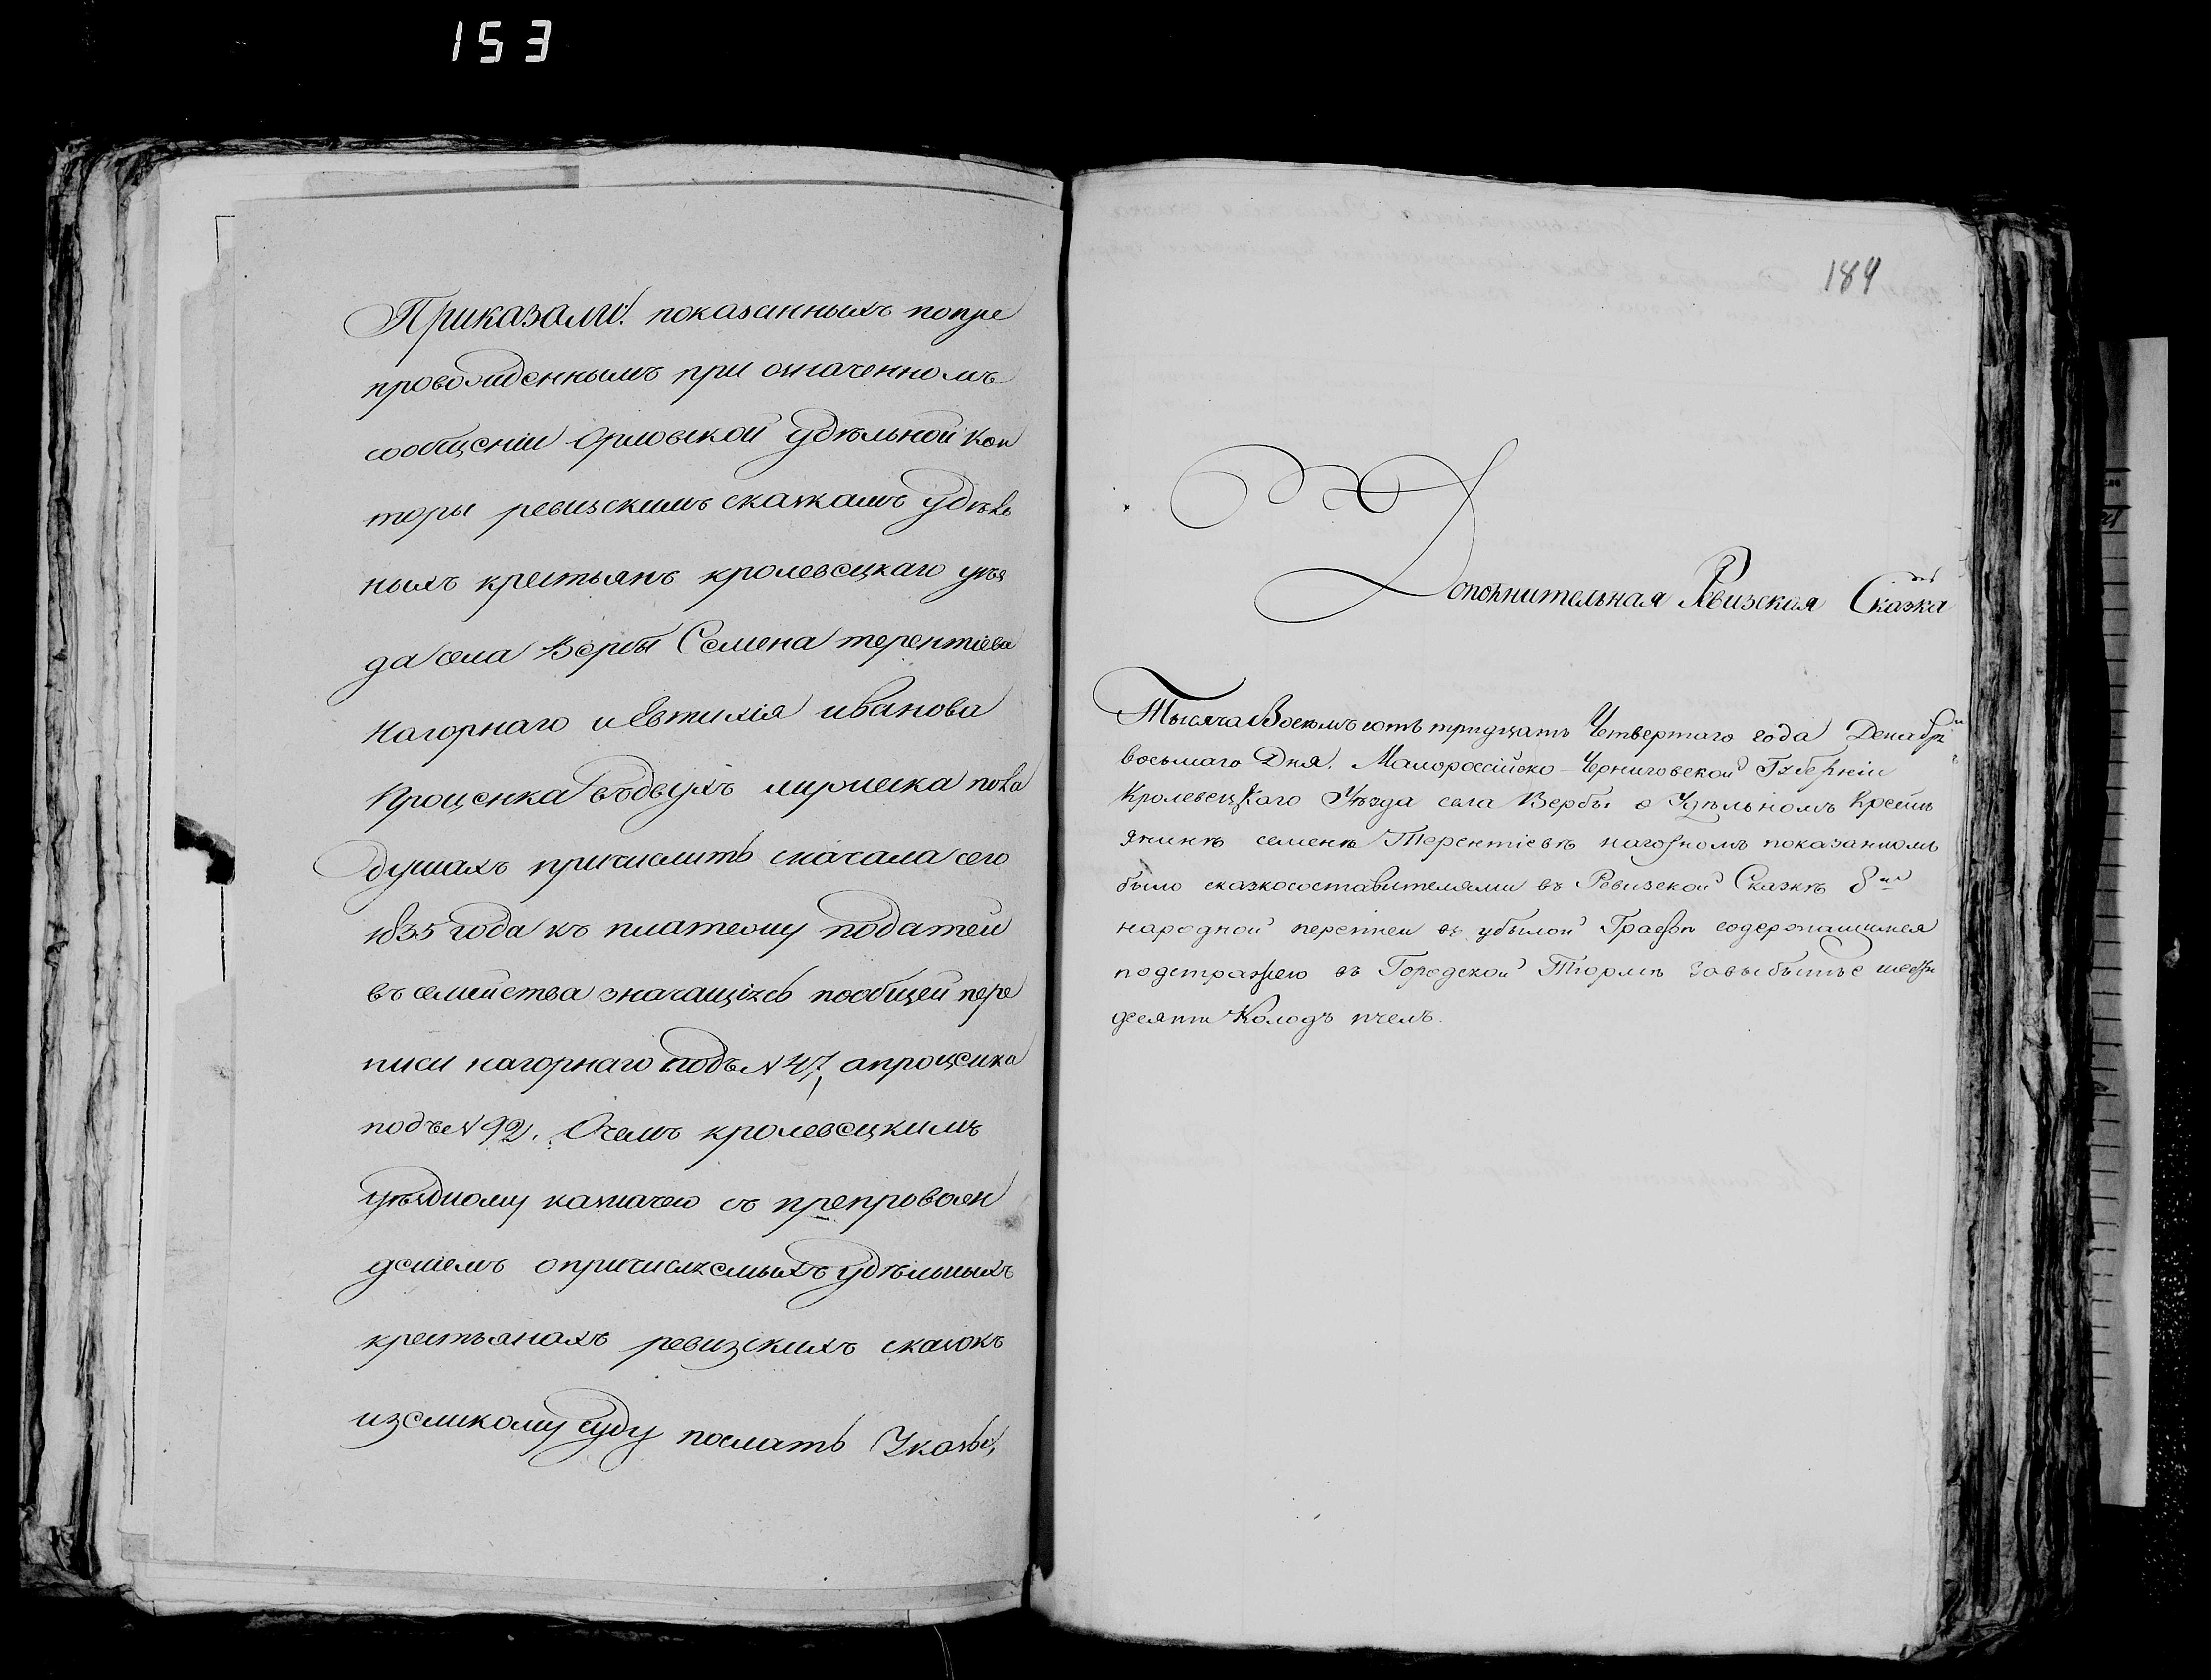 153
Приказали: показанныхъ попре
провожденнымъ при означенномъ
сообщеніи Орловской удѣльной Кон
торы ревизскимъ сказкамъ удѣль
ныхъ крестьянъ кролевецкаго уѣз
да села Вербы Семена терентіева
Нагорнаго и Евтихія иванова
Проценка въ двухъ мужеска пола
душахъ причислить сначала сего
1835 года къ платежу податей
въ семейства значащіхсь пообщей пере
писи нагорнаго подъ N 47, апроценка
подъ N 92. Очемъ кролевецкимъ
уѣздному казначею съ препровож
деніемъ опричисляемыхъ удѣльныхъ
крестьянахъ ревизскихъ сказокъ
иземскому суду послать Указы,
184
Дополнительная Ревизская Сказка
Тысяча Восемъ сотъ тридцать Четвертаго года Декабря
восьмаго Дня. Малороссійско-Черниговской Губерніи
Кролевецкаго Уѣзда села Вербы о Удѣльномъ Крестъ
янинѣ семенѣ Терентіевѣ нагорномъ показанномъ
было сказкосоставителями въ Ревизской Сказкѣ 8й
народной переписи въ убылой Графѣ содержащимся
подстражею въ Городской Тюрмѣ
десяти Колодъ пчелъ.